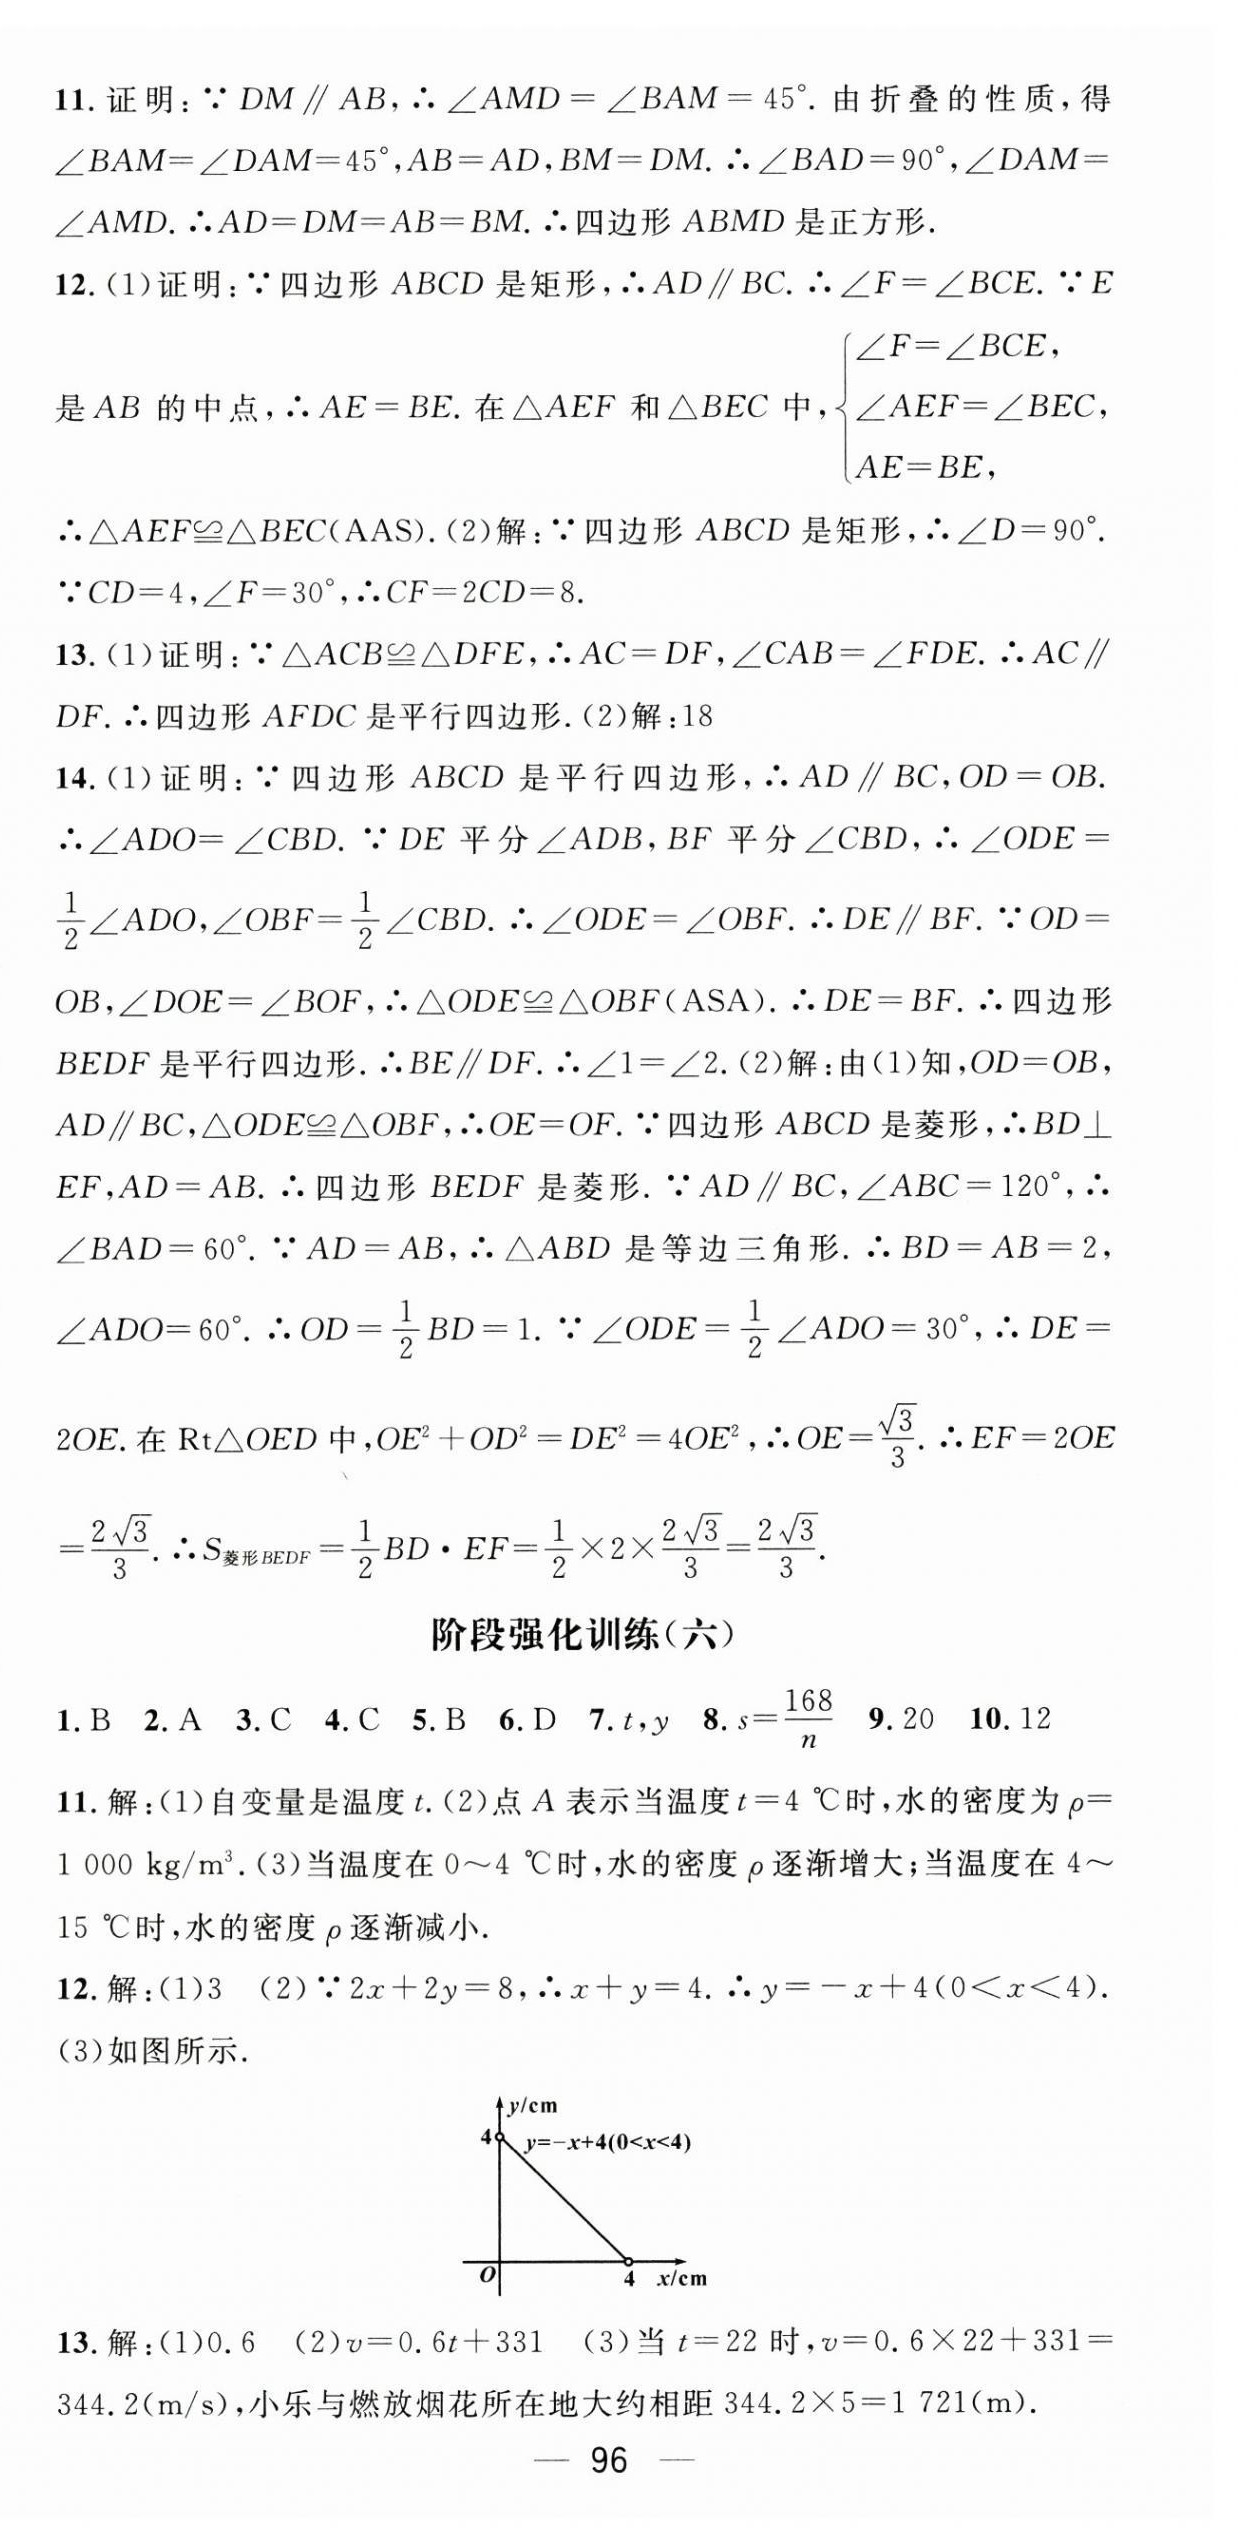 11. 证明:∵DM∥AB,∴∠AMD=∠BAM=45°. 由折叠的性质,得
∠BAM=∠DAM=45°,AB=AD,BM=DM. ∴∠BAD=90°,∠DAM=
∠AMD. ∴AD=DM=AB=BM. ∴四边形 ABMD 是正方形.
12. (1)证明:∵四边形 ABCD 是矩形,∴AD∥BC. ∴∠F=∠BCE. ∵E
是 AB 的中点,∴AE=BE. 在△AEF 和△BEC 中,{∠F=∠BCE,
∠AEF=∠BEC,
AE=BE,
∴△AEF≌△BEC(AAS). (2)解:∵四边形 ABCD 是矩形,∴∠D=90°.
∵CD=4,∠F=30°,∴CF=2CD=8.
13. (1)证明:∵△ACB≌△DFE,∴AC=DF,∠CAB=∠FDE. ∴AC∥
DF. ∴四边形 AFDC 是平行四边形. (2)解:18
14. (1)证明:∵四边形 ABCD 是平行四边形,∴AD∥BC,OD=OB.
∴∠ADO=∠CBD. ∵DE 平分∠ADB,BF 平分∠CBD,∴∠ODE=
1/2∠ADO,∠OBF=1/2∠CBD. ∴∠ODE=∠OBF. ∴DE∥BF. ∵OD=
OB,∠DOE=∠BOF,∴△ODE≌△OBF(ASA). ∴DE=BF. ∴四边形
BEDF 是平行四边形. ∴BE∥DF. ∴∠1=∠2. (2)解:由(1)知,OD=OB,
AD∥BC,△ODE≌△OBF,∴OE=OF. ∵四边形 ABCD 是菱形,∴BD⊥
EF,AD=AB. ∴四边形 BEDF 是菱形. ∵AD∥BC,∠ABC=120°,∴
∠BAD=60°. ∵AD=AB,∴△ABD 是等边三角形. ∴BD=AB=2,
∠ADO=60°. ∴OD=1/2BD=1. ∵∠ODE=1/2∠ADO=30°,∴DE=
2OE. 在 Rt△OED 中,OE²+OD²=DE²=4OE²,∴OE=√3/3. ∴EF=2OE
=2√3/3. ∴S菱形BEDF=1/2BD·EF=1/2×2×2√3/3=2√3/3.
阶段强化训练(六)
1. B 2. A 3. C 4. C 5. B 6. D 7. t,y 8. s=168/n 9. 20 10. 12
11. 解:(1)自变量是温度 t. (2)点 A 表示当温度 t=4 ℃时,水的密度为 ρ=
1 000 kg/m³. (3)当温度在 0~4 ℃时,水的密度 ρ 逐渐增大;当温度在 4~
15 ℃时,水的密度 ρ 逐渐减小.
12. 解:(1)3 (2)∵2x+2y=8,∴x+y=4. ∴y=-x+4(0<x<4).
(3)如图所示.
y/cm
4 y=-x+4(0<x<4)
O 4 x/cm
13. 解:(1)0.6 (2)v=0.6t+331 (3)当 t=22 时,v=0.6×22+331=
344.2(m/s),小乐与燃放烟花所在地大约相距 344.2×5=1 721(m).
— 96 —